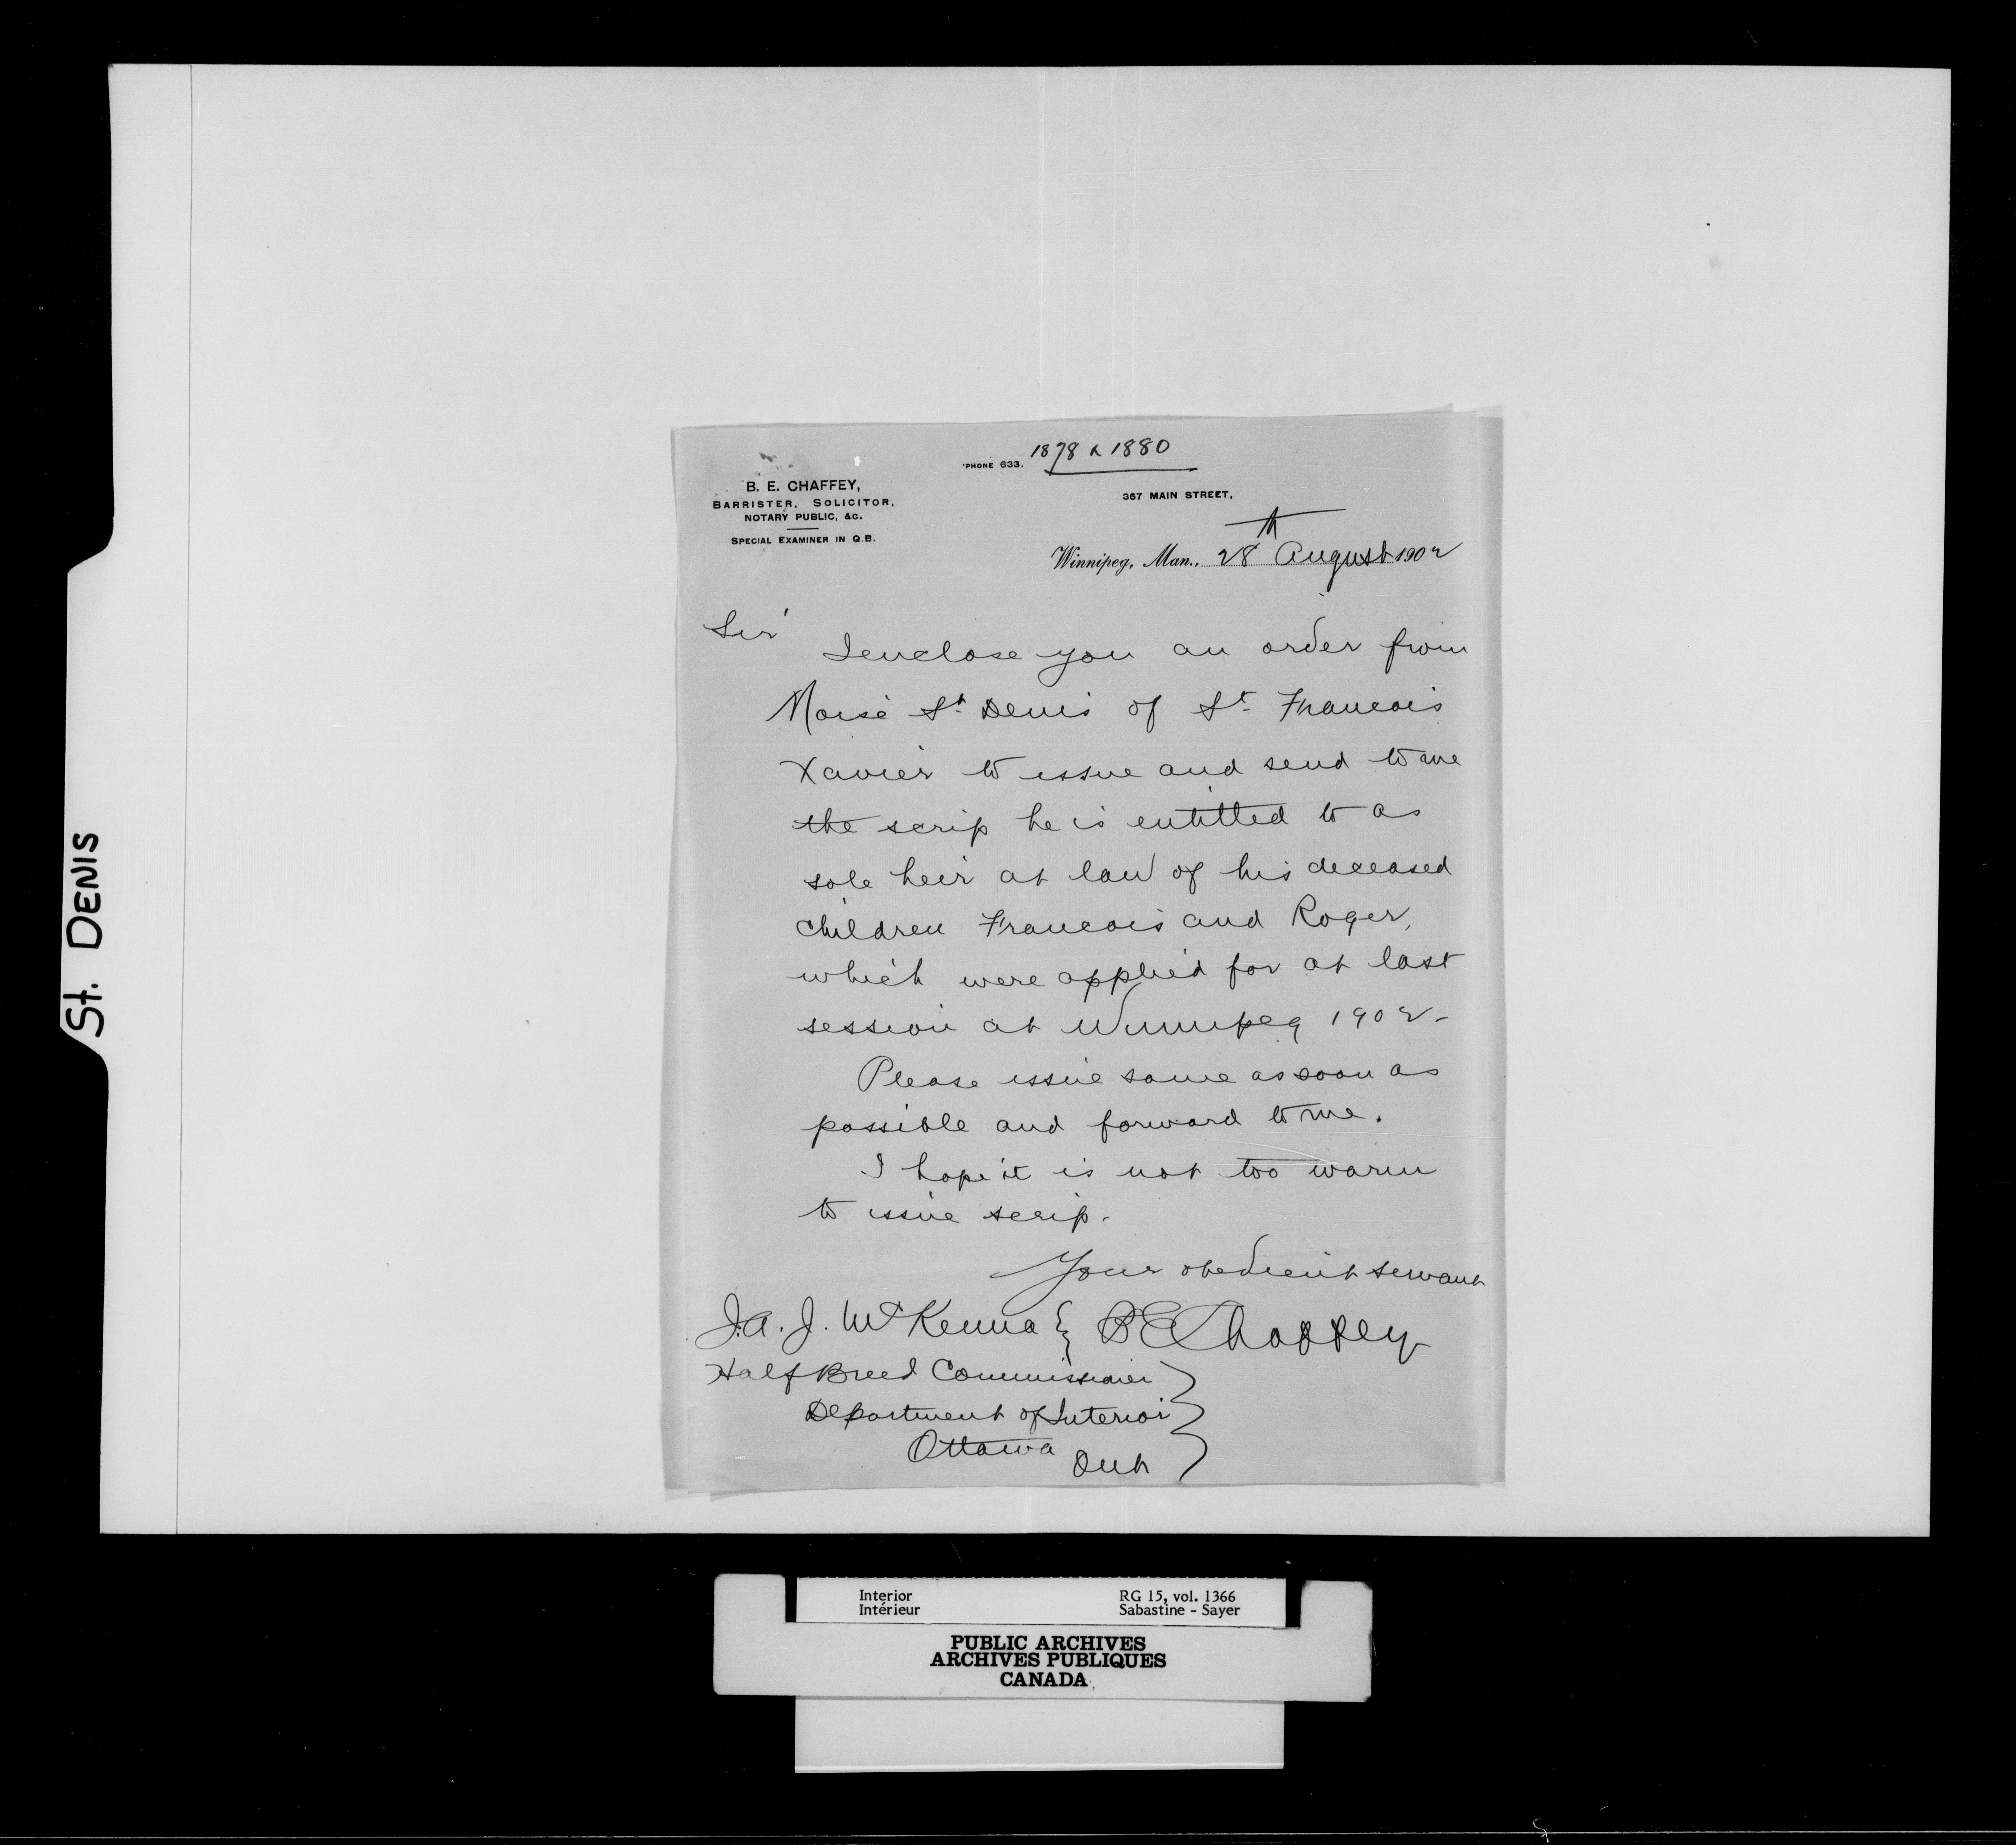 St. DENIS
1878 & 1880
'PHONE 633.
B. E. CHAFFEY,
BARRISTER, SOLICITOR,
NOTARY PUBLIC, &C.
SPECIAL EXAMINER IN Q.B.
367 MAIN STREET,
Winnipeg, Man., 28th August 1902
Sir
I enclose you an order from
Moise St. Denis of St. Francois
Xavier to issue and send to me
the scrip he is entitled to as
sole heir at law of his deceased
children Francois and Roger,
which were applied for at last
session at Winnipeg 1902-
Please issue same as soon as
possible and forward to me.
I hope it is not too warm
to issue scrip.
Your obedient servant
J. A. J. McKenna } B E Chaffey
Half Breed Commissioner
Department of Interior
Ottawa Ont
Interior RG 15, vol. 1366
Intérieur Sabastine - Sayer
PUBLIC ARCHIVES
ARCHIVES PUBLIQUES
CANADA